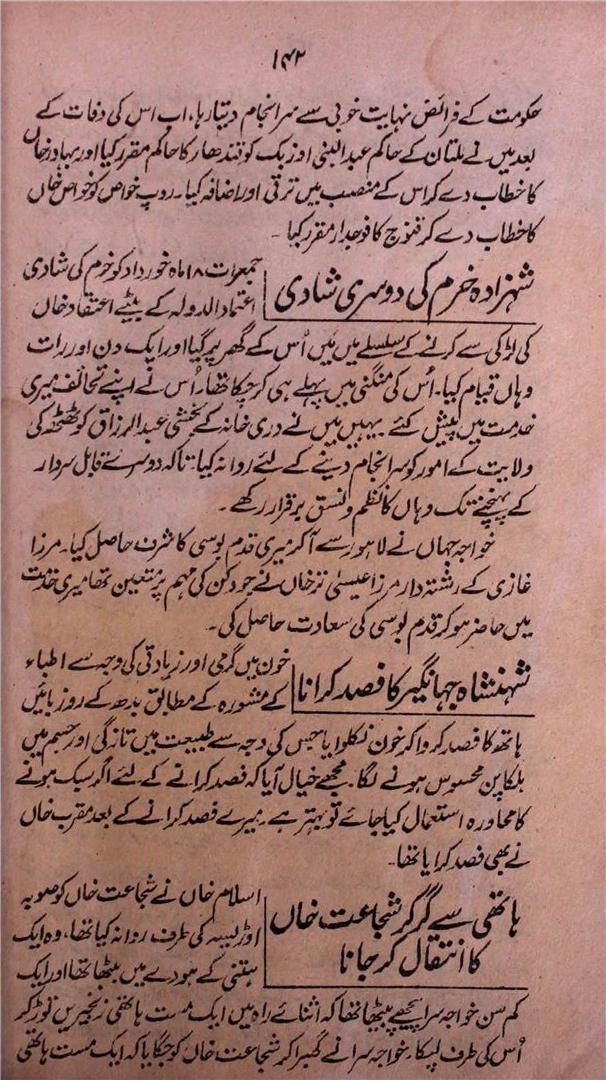 ۱۴۲
حکومت کے فرائض نہایت خوبی سے سرانجام دیتا رہا، اب اس کی وفات کے
بعد میں نے ملتان کے حاکم عبدالبنی اوزبک کو قندھار کا حاکم مقرر کیا اور بہادر خاں
کا خطاب دے کر اس کے منصب میں ترقی اور اضافہ کیا۔ روپ خواص کو خواص خاں
کا خطاب دے کر قنوج کا فوجدار مقرر کیا۔
شہزادہ خرم کی دوسری شادی
جمعرات ۱۸ ماہ خورداد کو خرم کی شادی
اعتماد الدولہ کے بیٹے اعتقاد خاں
کی لڑکی سے کرنے کے سلسلے میں میں اُس کے گھر پر گیا اور ایک دن اور رات
وہاں قیام کیا۔ اُس کی منگنی میں پہلے ہی کر چکا تھا۔ اُس نے اپنے تحائف میری
خدمت میں پیش کئے یہیں میں نے دری خانہ کے بخشی عبدالرزاق کو ٹھٹھہ کی
ولایت کے امور کو سرانجام دینے کے لئے روانہ کیا: تاکہ دوسرے قابل سردار
کے پہنچنے تک وہاں کا نظم و نسق برقرار رکھے۔
خواجہ جہاں نے لاہور سے آ کر میری قدم بوسی کا شرف حاصل کیا۔ مرزا
غازی کے رشتہ دار مرزا عیسیٰ ترخاں نے جو دکن کی مہم پر متعین تھا میری خدمت
میں حاضر ہو کر قدم بوسی کی سعادت حاصل کی۔
شہنشاہ جہانگیر کا فصد کرانا
خون میں گرمی اور زیادتی کی وجہ سے اطباء
کے مشورہ کے مطابق بدھ کے روز بائیں
ہاتھ کا فصد کروا کر خون نکلوایا جس کی وجہ سے طبیعت میں تازگی اور جسم میں
ہلکا پن محسوس ہونے لگا۔ مجھے خیال آیا کہ فصد کرانے کے لئے اگر سبک ہونے
کا محاورہ استعمال کیا جائے تو بہتر ہے۔ میرے فصد کرانے کے بعد مقرب خاں
نے بھی فصد کرایا تھا۔
ہاتھی سے گر کر شجاعت خاں
کا انتقال کر جانا
اسلام خاں نے شجاعت خاں کو صوبہ
اوڑیسہ کی طرف روانہ کیا تھا، وہ ایک
ہتنی کے ہودے میں بیٹھا تھا اور ایک
کم سن خواجہ سرا پیچھے بیٹھا تھا کہ اثنائے راہ میں ایک مست ہاتھی زنجیریں توڑ کر
اُس کی طرف لپکا۔ خواجہ سرا نے گھبرا کر شجاعت خاں کو جگایا کہ ایک مست ہاتھی